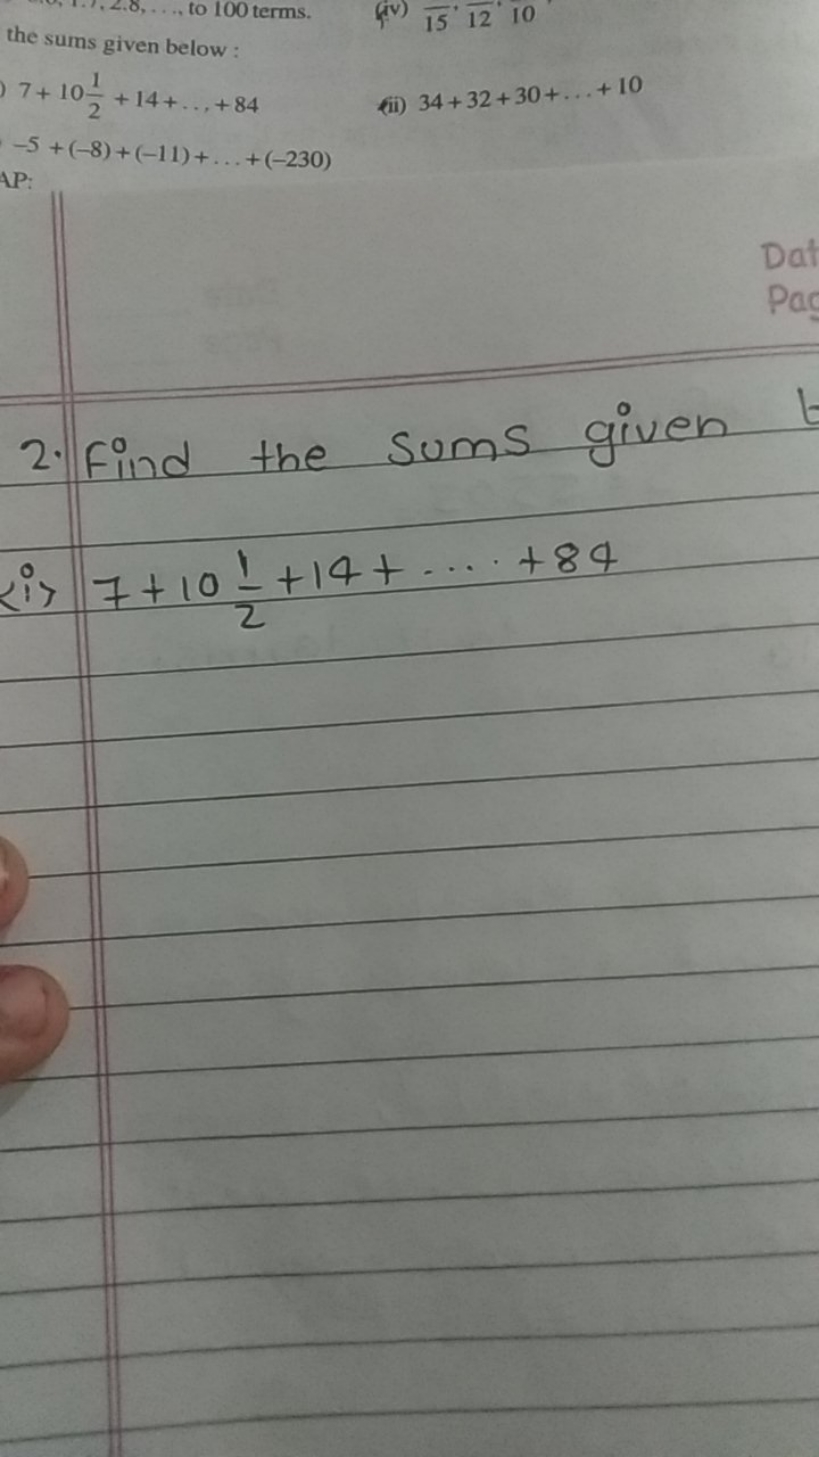 1.7, 2.8, . . ., to 100 terms.
(iv) 15, 12, 10
the sums given below :
) 7 + 10 1/2 + 14 + . . . + 84
(ii) 34 + 32 + 30 + . . . + 10
–5 + (–8) + (–11) + . . . + (–230)
AP:
2. Find the sums given
<i> 7 + 10 1/2 + 14 + .... + 84